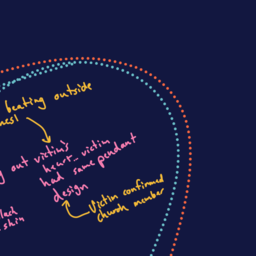 beating outside
out victim's
heart_victim
had same pendant
design
Victim confirmed
church member
skin